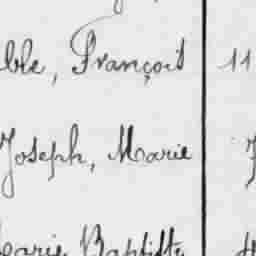 ble, François 11
Joseph, Marie
Marie Baptiste